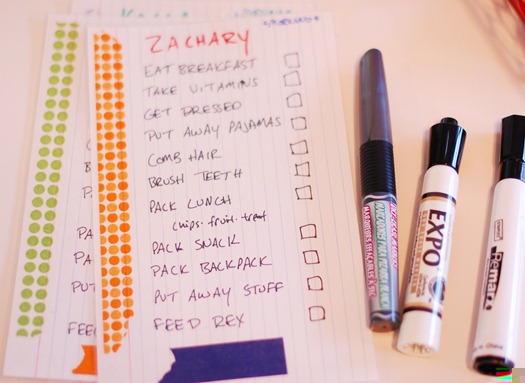 ZACHARY
EAT BREAKFAST
TAKE VITAMINS
GET DRESSED
PUT AWAY PAJAMAS
COMB HAIR
BRUSH TEETH
PACK LUNCH
chips · fruit · treat
PACK SNACK
PACK BACKPACK
PUT AWAY STUFF
FEED REX
FEED
EXPO
Remark